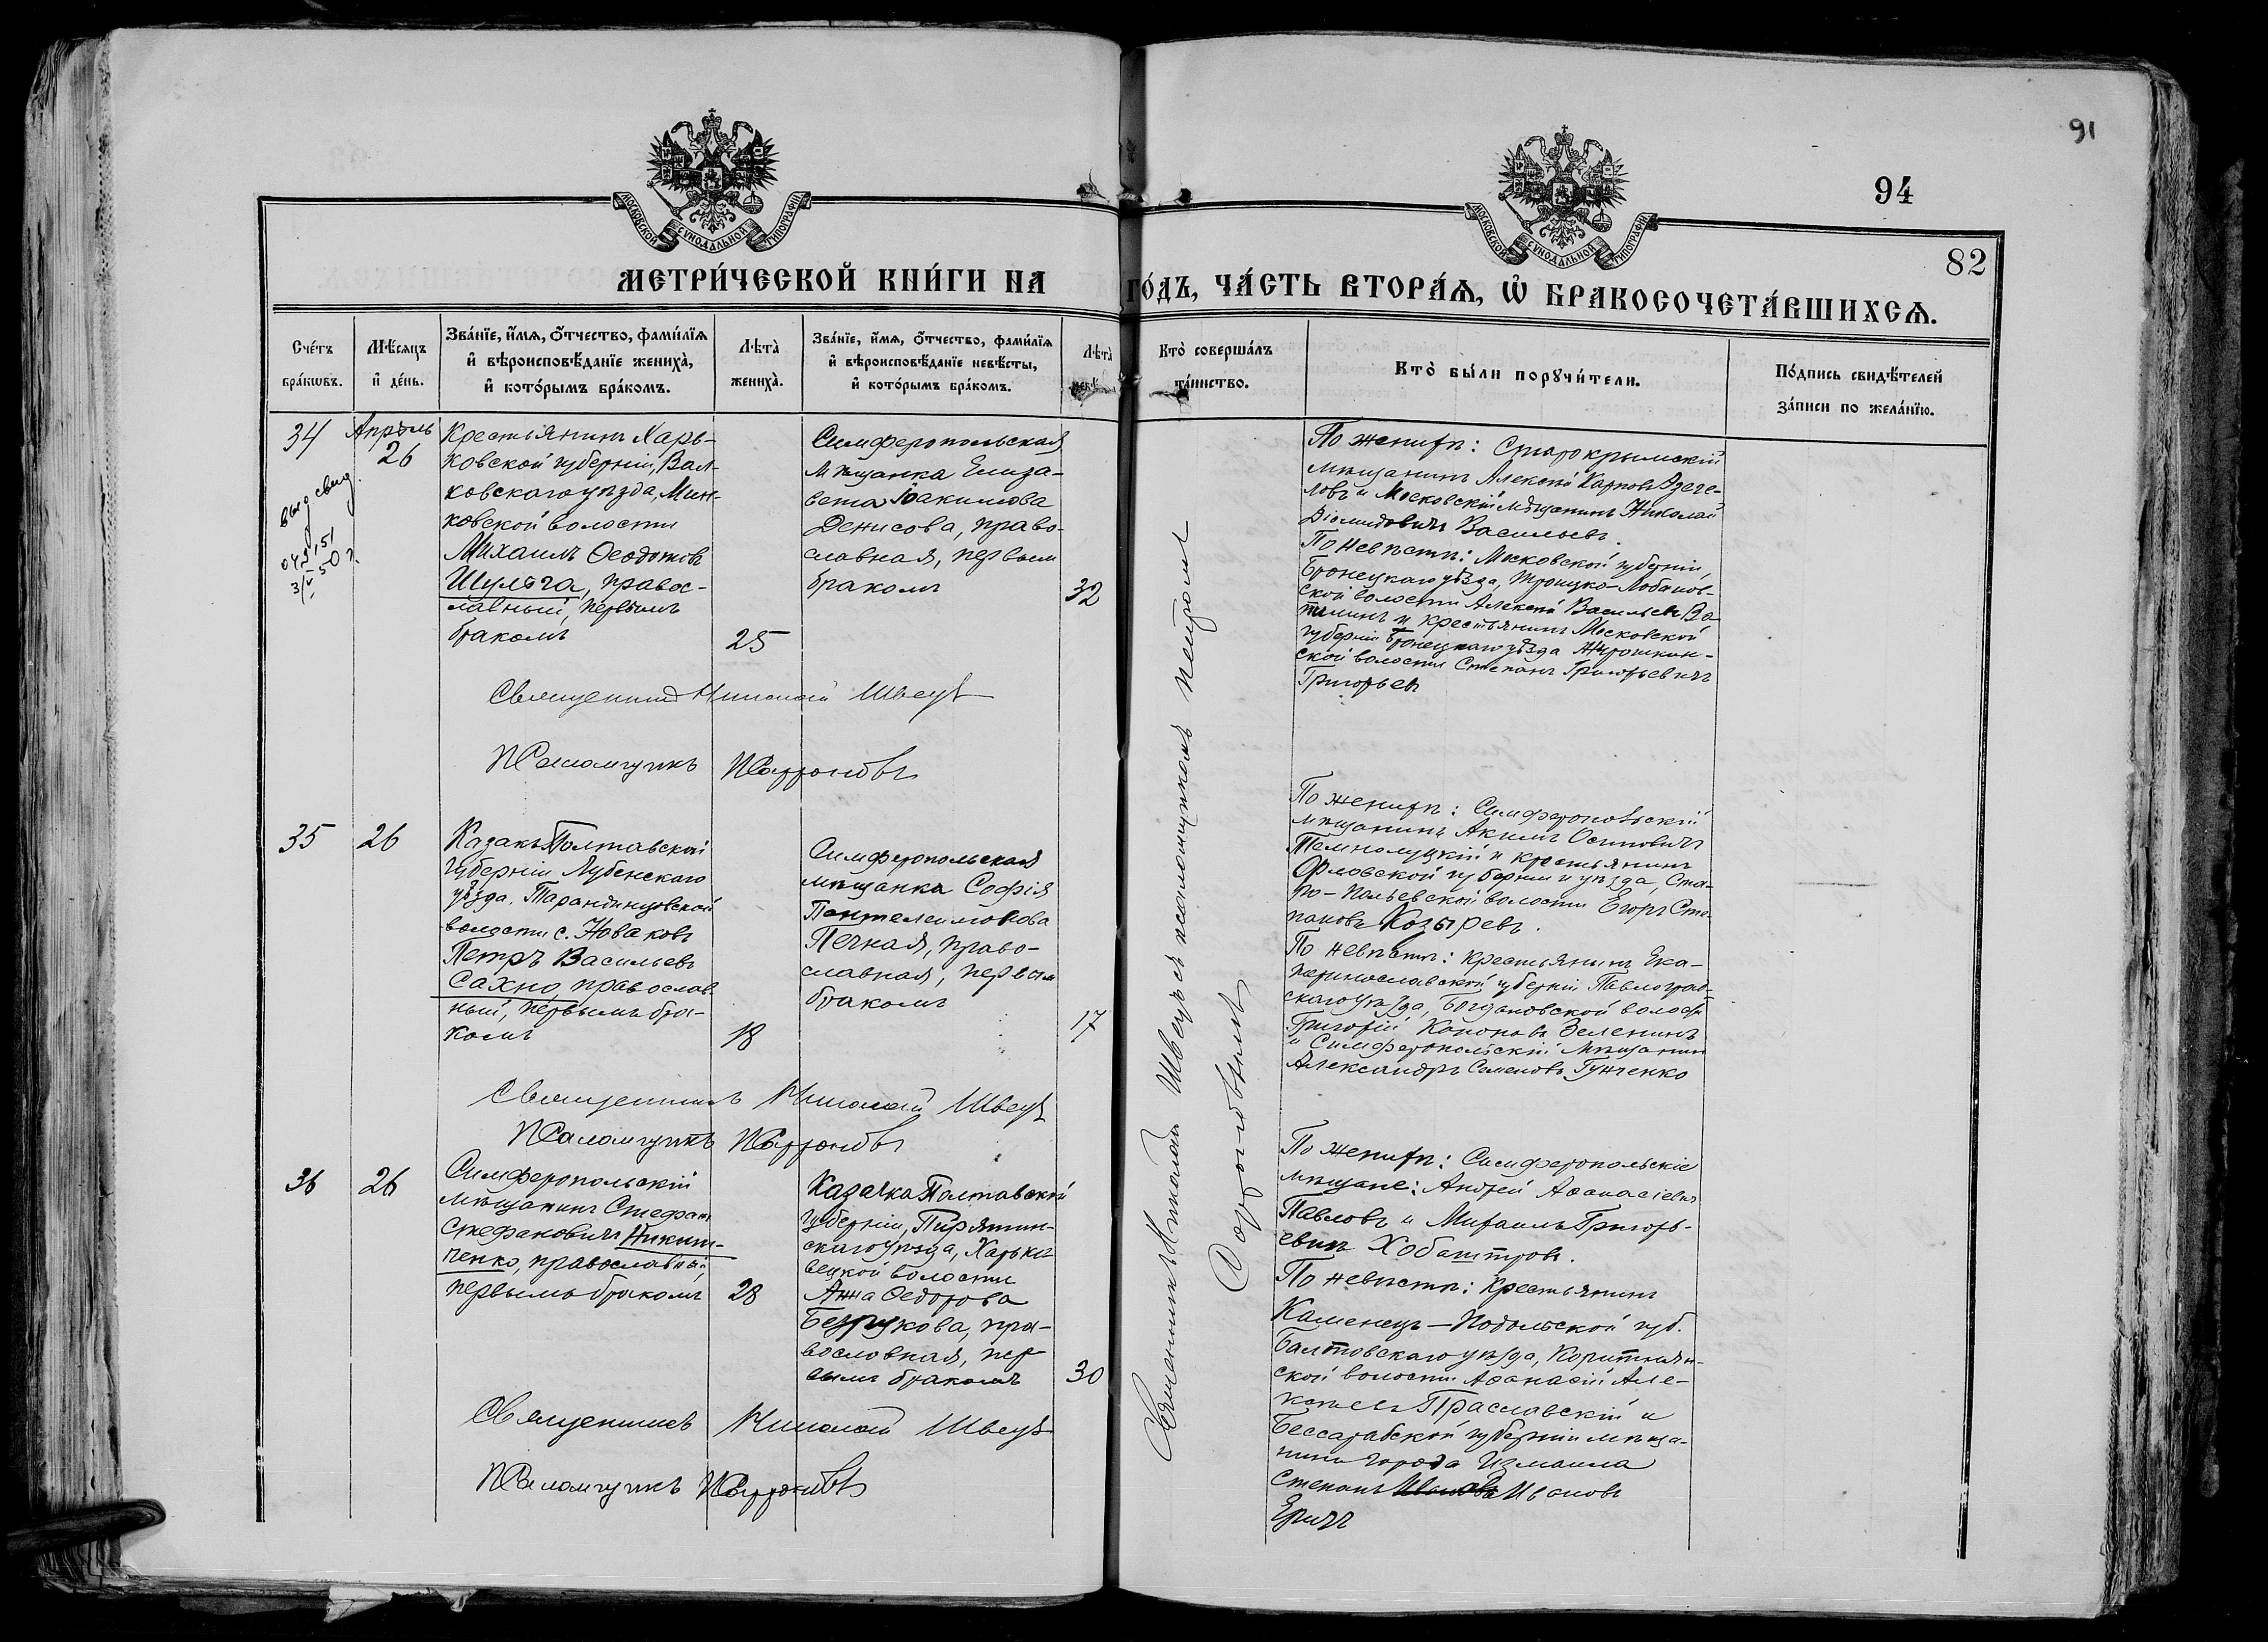 91
94
82
МОСКОВСКОЙ СѴНОДАЛЬНОЙ ТИПОГРАФІИ
МОСКОВСКОЙ СѴНОДАЛЬНОЙ ТИПОГРАФІИ
МЕТРИ́ЧЕСКОЙ КНИ́ГИ НА ГО́ДЪ, ЧА́СТЬ ВТОРА́Ѧ, Ѡ҆ БРАКОСОЧЕТА́ВШИХСѦ.
Сче́тъ
бра́кѡвъ.
Мѣ́сяцъ
и҆ де́нь.
Зва́нїе, и҆́мѧ, ѻ҆́тчество, фами́лїѧ
и҆ вѣроисповѣ́данїе жениха̀,
и҆ кото́рымъ бра́комъ.
Лѣта̀
жениха̀.
Зва́нїе, и҆́мѧ, ѻ҆́тчество, фами́лїѧ
и҆ вѣроисповѣ́данїе невѣ́сты,
и҆ кото́рымъ бра́комъ.
Лѣта̀
невѣ
Кто̀ соверша́лъ
та́инство.
Кто̀ бы́ли порꙋчи́тели.
По́дпись свидѣ́телей
за́писи по жела́нїю.
34
Апрѣль
26
выд свид.
3/V 50 г.
Крестьянинъ Харь-
ковской губерніи, Вал-
ковскаго уѣзда, Мин-
ковской волости
Михаилъ Ѳеодотовъ
Шульга, правос-
лавный, первымъ
бракомъ
25
Симферопольская
мѣщанка Елиза-
вета Іоакимова
Денисова, право-
славная, первымъ
бракомъ
32
По женихѣ: Старокрымскій
мѣщанинъ Алексѣй Карповъ
ловъ и Московскій мѣщанинъ Николай
Діомидовичъ Васильевъ.
По невѣстѣ: Московской губерніи,
Бронецкаго уѣзда, Троицко-Лобанов-
ской волости Алексѣй Васильевъ
и крестьянинъ Московской
губерніи Бронецкаго уѣзда Жирошкин-
ской волости Степанъ Григорьевичъ
Григорьевъ
Священникъ Николай Швецъ
Псаломщикъ
Священникъ Николай Швецъ съ псаломщикомъ Петромъ
35
26
Казакъ Полтавской
губерніи Лубенскаго
уѣзда. Тарандинцовской
волости с. Новаковъ
Петръ Васильевъ
Сахно, православ-
ный, первымъ бра-
комъ
18
Симферопольская
мѣщанка Софія
Пантелеимонова
Печная, право-
славная, первым
бракомъ
17
По женихѣ: Симферопольскій
мѣщанинъ Акимъ Осиповичъ
Темнолуцкій и крестьянинъ
Орловской губерніи и уѣзда, Ста-
ро-Пальевской волости Егоръ Сте-
пановъ Козыревъ.
По невѣстѣ: крестьянинъ Ека-
теринославской губерніи Павлоград-
скаго уѣзда, Богдановской волости
Григорій Кононовъ Зеленинъ
и Симферопольскій мѣщанинъ
Александръ Семеновъ Гунченко
Священникъ Николай Швецъ
Псаломщикъ
36
26
Симферопольскій
мѣщанинъ Стефанъ
Стефановичъ Никит-
ченко, православный,
первымъ бракомъ
28
Казачка Полтавской
губерніи, Пирятин-
скаго уѣзда, Харько-
вецкой волости
Анна Ѳедорова
Безрукова, пра-
вославная, пер-
вымъ бракомъ
30
По женихѣ: Симферопольскіе
мѣщане: Андрей Аѳанасіевъ
Павловъ и Михаилъ Григорь-
евичъ Хобаштровъ.
По невѣстѣ: Крестьянинъ
Каменецъ-Подольской губ.
Балтовскаго уѣзда, Коритнян-
ской волости Аѳанасій Але-
ксѣевъ Праславскій и
Бессарабской губерніи мѣща-
нинъ города Измаила
Степанъ Ивановъ
Еричъ
Священникъ Николай Швецъ
Псаломщикъ